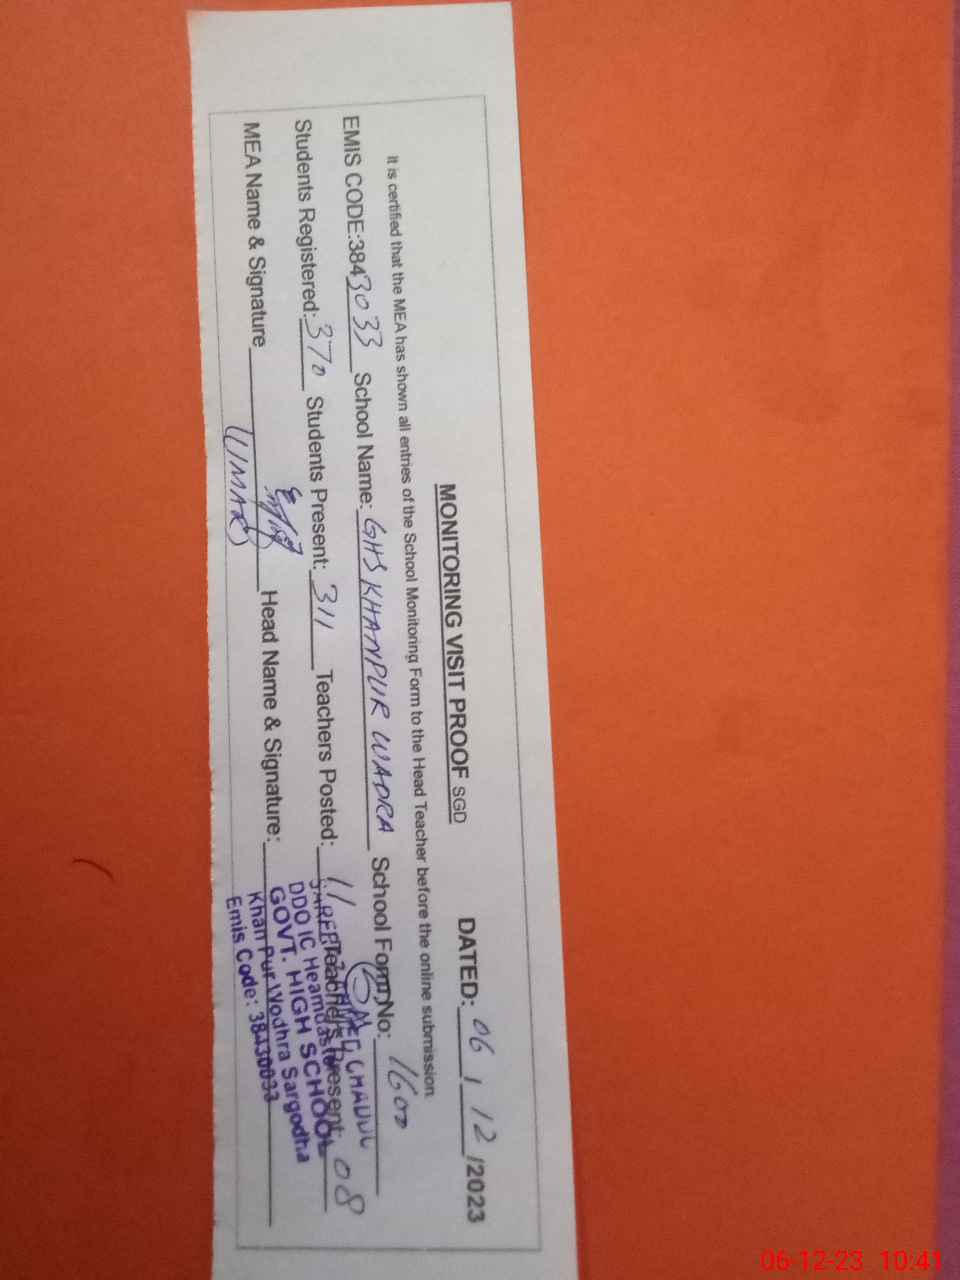 MONITORING VISIT PROOF SGD DATED: 06 / 12 /2023
It is certified that the MEA has shown all entries of the School Monitoring Form to the Head Teacher before the online submission.
EMIS CODE:3843033 School Name: GHS KHANPUR WADRA School Form No: 1600
Students Registered: 370 Students Present: 311 Teachers Posted: 11 Teachers Present: 08
MEA Name & Signature UMAR Head Name & Signature:
DDO IC Headmaster
GOVT. HIGH SCHOOL
Khan Pur Wodhra Sargodha
Emis Code: 38430033
06-12-23 10:41